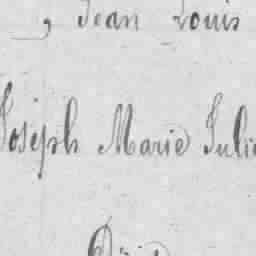 , Jean Louis
Joseph Marie Julie